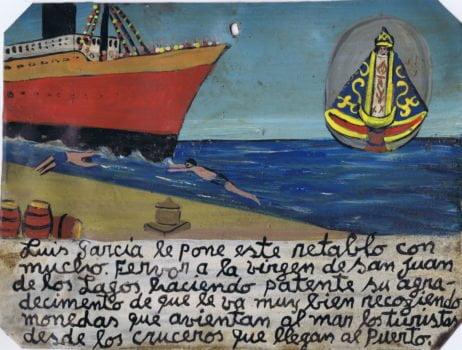 Luis García le pone este retablo con
mucho. Fervor a la virgen de San Juan
de los Lagos haciendo patente su agra-
decimento de que le va muy bien recogiendo
monedas que avientan al mar los turistas
desde los cruceros que llegan al Puerto.